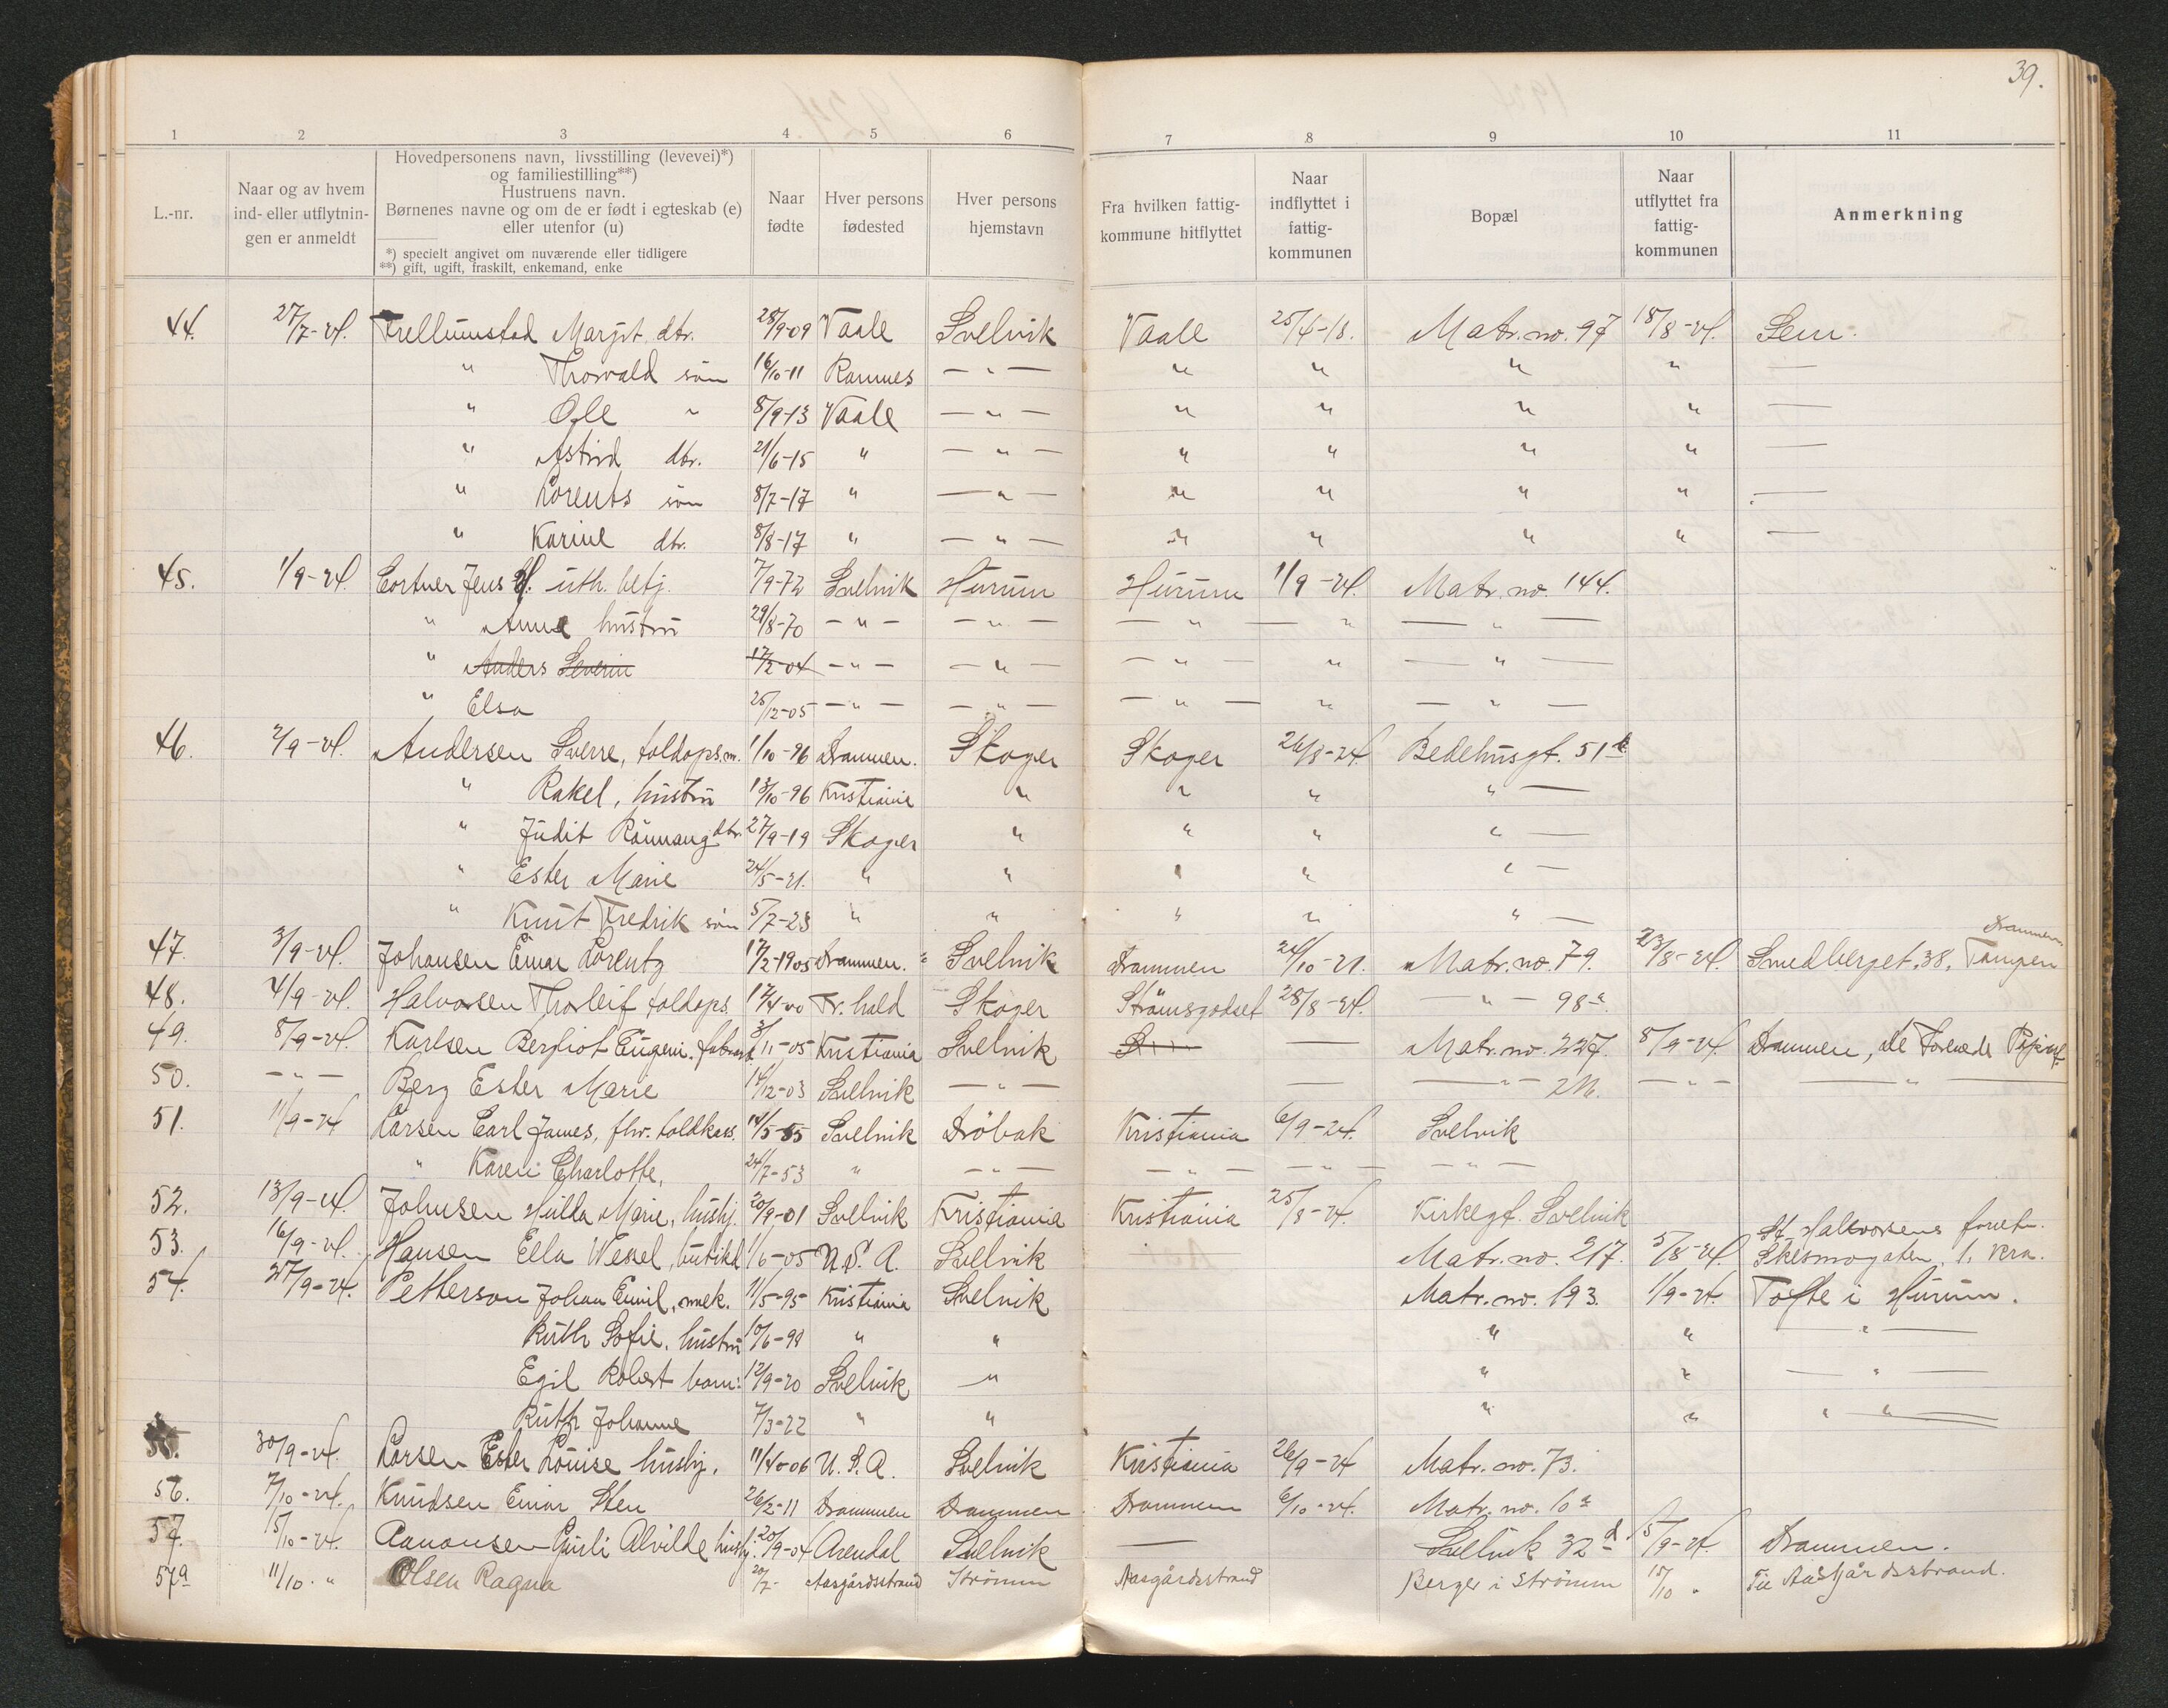 39.
1 2 3 4 5 6 7 8 9 10 11
L.-nr.
Naar og av hvem ind- eller utflytnin-gen er anmeldt
Hovedpersonens navn, livsstilling (levevei)*) og familiestilling**)
Hustruens navn.
Børnenes navne og om de er født i egteskab (e) eller utenfor (u)
*) specielt angivet om nuværende eller tidligere
**) gift, ugift, fraskilt, enkemand, enke
Naar fødte
Hver persons fødested
Hver persons hjemstavn
Fra hvilken fattig-kommune hitflyttet
Naar indflyttet i fattig-kommunen
Bopæl
Naar utflyttet fra fattig-kommunen
Anmerkning
44. 27/7-24. Trellumstad Margit dtr. 28/9-09 Vaale Svelvik Vaale 25/4-18. Matr. no. 97 18/8-24. Sem.
" Thorvald søn 16/10-11 Ramnes — " — " " " " —
" Ole " 8/9-13 Vaale — " — " " " " —
" Astrid dtr. 21/6-15 " — " — " " " " —
" Lorents søn 8/7-17 " — " — " " " " —
" Karine dtr. 8/8-17 " — " — " " " " —
45. 1/9-24. Cortner Jens H. uth. betj. 7/9-72 Svelvik Hurum Hurum 1/9-24. Matr. no. 144.
" Anna hustru 29/8-70 — " — — " — — " — " — " —
" Anders Severin 17/2-04 — " — — " — — " — " — " —
" Elsa 25/12-05 — " — — " — — " — " — " —
46. 2/9-24. Andersen Sverre, toldops.m. 1/10-96 Drammen. Skoger Skoger 26/8-24. Bedehusgt. 51
" Rakel, hustru 13/10-96 Kristiania " " " " —
" Judit Rønnaug dtr. 27/9-19 Skoger " " " " —
" Ester Marie 24/5-21. " " " " " —
" Knut Fredrik søn 5/7-23 " " " " " —
47. 3/9-24. Johansen Einar Lorentz 17/2-1905 Drammen. " Svelvik Drammen 24/10-21. Matr. no. 79. 23/8-24. Smedberget. 38, Tangen Drammen
48. 4/9-24. Halvorsen Thorleif toldops. 17/4-00 Fr.hald Skoger Strømsgodset 28/8-24. — " — 98a
49. 8/9-24. Karlsen Bergliot Eugeni. 3/11-05 Kristiania Svelvik — Matr. no. 227. 8/9-24. Drammen, de Forenede
50. — " — Berg Ester Marie 14/12-03 Svelvik — " — — — " — — " — — " —
51. 11/9-24 Larsen Carl James, fhv. toldkass. 14/5-55 Svelvik Drøbak Kristiania 6/9-24. Svelvik
" Karen Charlotte, 24/7-53 " — " — — " — — " — — " —
52. 13/9-24. Johnsen Hilda Marie, hushj. 20/9-01 Svelvik Kristiania Kristiania 25/8-24. Kirkegt. Svelvik
53. 16/9-24. Hansen Ella Wessel, butikd 1/6-05 U.S.A. Svelvik Matr. no. 217. 5/8-24. St. Halvorsens forretn. Skismogaten, 1. Kra.
54. 27/9-24. Petterson Johan Emil, mek. 11/5-95 Kristiania Svelvik Matr. no. 193. 1/9-24. Tofte i Hurum.
Ruth Sofie, hustru 10/6-99 " " " " — " —
Egil Robert barn: 12/9-20 Svelvik " " " — " —
Ruth Johanne 7/3-22 " " " " " " —
55. 30/9-24. Larsen Ester Louise hushj. 11/4-06 U.S.A. Svelvik Kristiania 26/9-24 Matr. no. 73.
56. 7/10-24. Knudsen Einar Sten 26/2-11 Drammen Drammen Drammen 6/10-24. Matr. no. 10a
57. 15/10-24. Aanonsen Gurli Alvilde hushj. 20/9-04 Arendal Svelvik — Svelvik 32d 15/9-24. Drammen.
57a 11/10. " Olsen Ragna 20/7- Aasgårdsstrand Strømm Aasgårdsstrand Berger i Strømm 15/10 " Til Aasgårdsstrand.